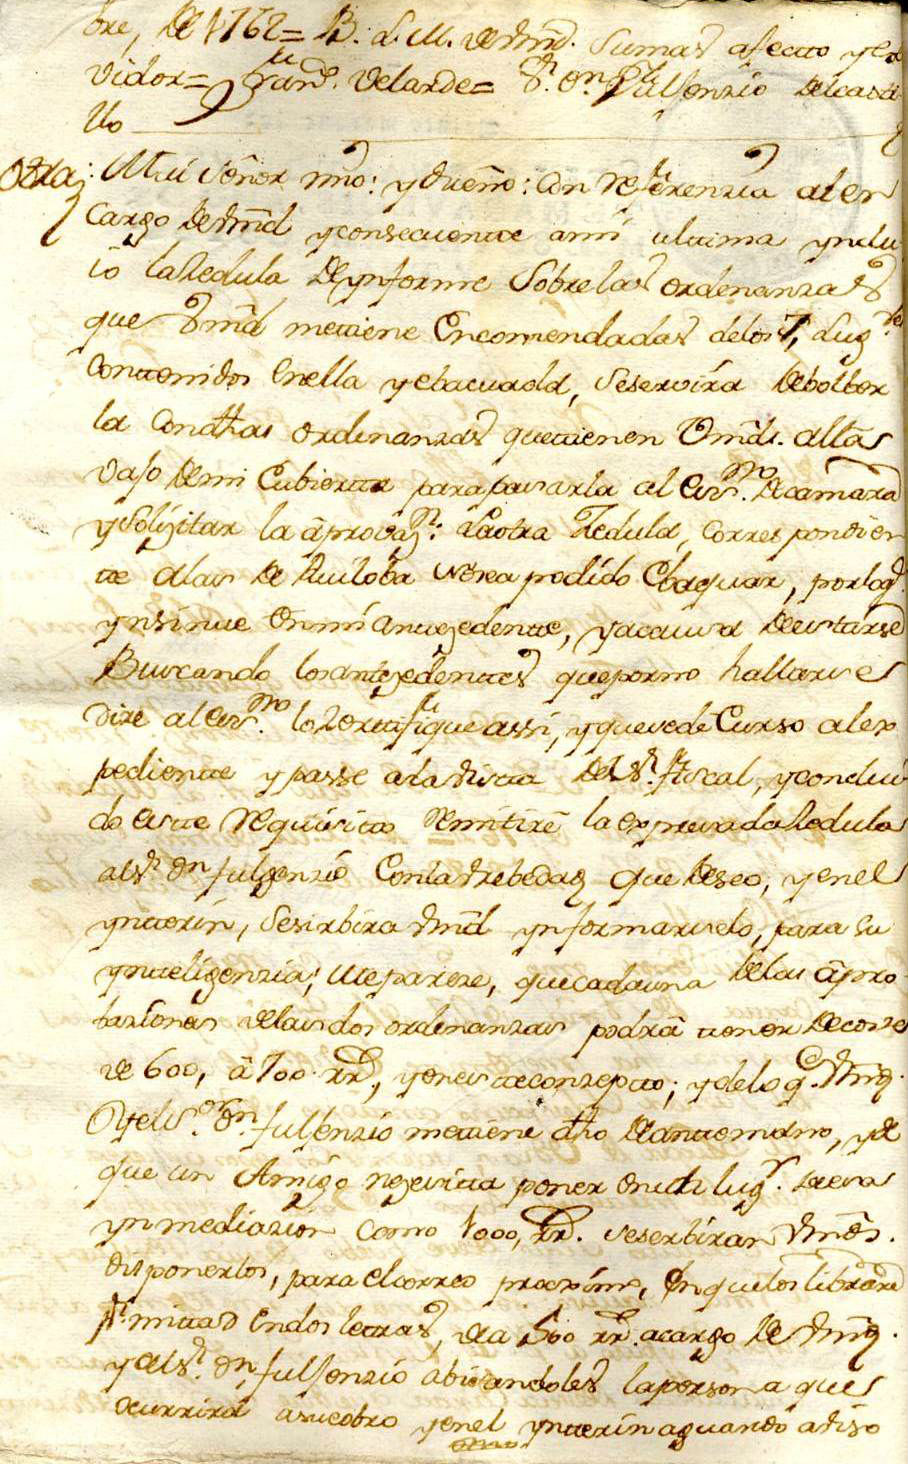 bre, de 1762= B. L. M. de Vmd. Su mas afecto ser
vidor= Franco. Velarde= Sr. Dn. Fulgenzio del Casti
llo
Otra; Mui Señor mio: y Dueño: Con referenzia al en
cargo de Vmd y consecuente a mi ultima ynclu
io la Zedula de ynforme sobre las ordenanzas
que Vmd me tiene Encomendadas de los 7, Lugres
Contenidos en ella y ebacuada, se servirá debolber
la Con dhas ordenanzas que tienen Vmds. alla
vajo de mi Cubierta para pasarla al essno. de camara
y Solizitar la âprovazn: La otra Zedula, Correspondien
te a las de Quiloba no sea podido Ebaquar, por lo q.
ynsinue en mi antezedente, y a causa de estarse
Buscando los antezedentes que por no hallarse
dixe al essno. lo Zertifique assi, y que se de Curso al ex
pediente y passe a la vista del Sr. fiscal, y conclui
do este requisito remitiré la expresada Zedula
al Sr. Dn fulgenzio Con la brebedad que deseo, y en el
ynterin, se sirbira Vmd ynformarselo, para su
ynteligenzia; Me pareze, que cada una de las âpro
baziones de las dos ordenanzas podrâ tener de coste
de 600, â 700 rr., y en este conzepto; y de lo q. Vmd.
y el Sr. Dn. fulgenzio me tiene dho de antemano, y de
que un Amigo nezesita poner en ese lugr. de esa
ynmediazion como 1000, rr. se serbiran Vmds.
disponerlos, para el correo proximo, en que los librare
pr. mitad en dos letras, de a 500 rr. a cargo de Vmd.
y del Sr. Dn. fulgenzio abisandoles la persona que
ocurrirá a su cobro y en el ynterin aguardo abiso